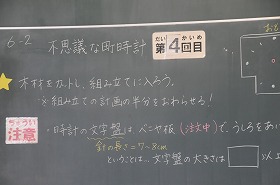 6-2 不思議な町時計 第4回目
だい かいめ
木材をカットし、組み立てに入ろう。
※組み立ての計画の半分をおわらせる!
ちゅうい
注意
・時計の文字盤は、ベニヤ板(注文中)で、うしろをあい
針の長さ=7~8cm
ということは…文字盤の大きさは